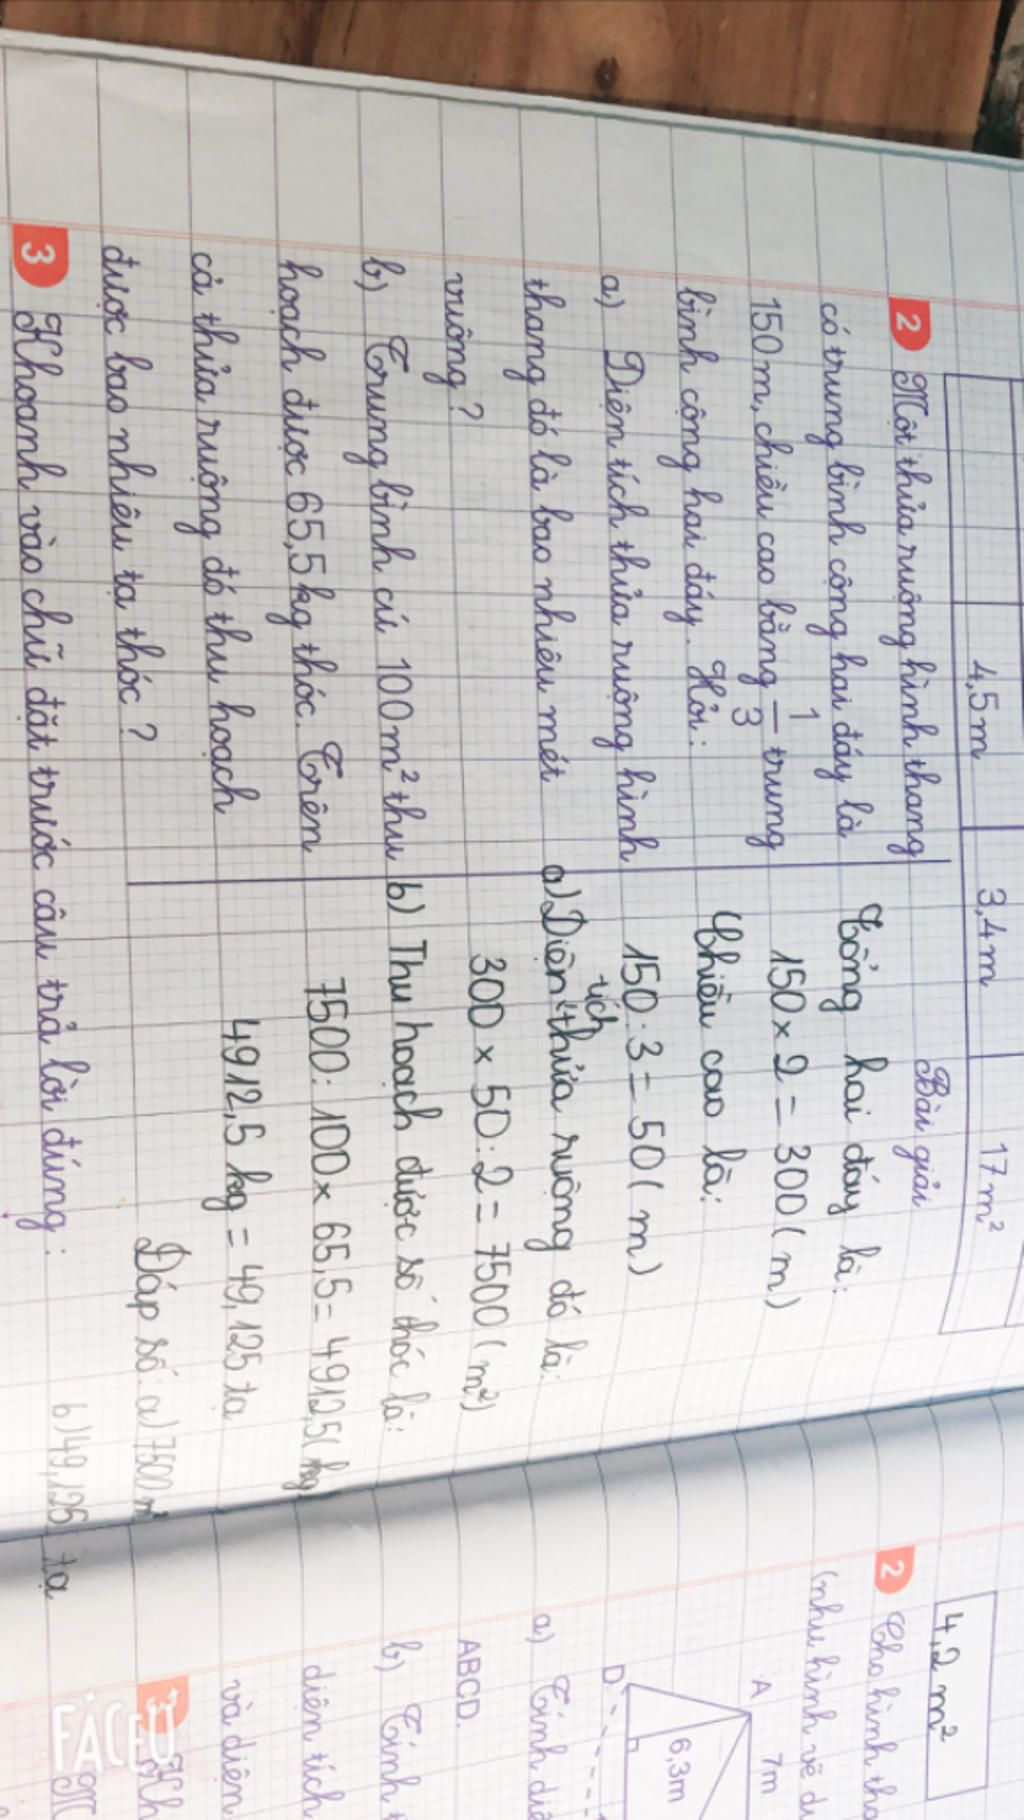 4,5m 3,4m 17m²
2 Một thửa ruộng hình thang
có trung bình cộng hai đáy là
150m, chiều cao bằng 1/3 trung
bình cộng hai đáy. Hỏi:
a) Diện tích thửa ruộng hình
thang đó là bao nhiêu mét
vuông?
b) Trung bình cứ 100m² thu
hoạch được 65,5kg thóc. Trên
cả thửa ruộng đó thu hoạch
được bao nhiêu tạ thóc?
Bài giải
Tổng hai đáy là:
150 × 2 = 300 (m)
Chiều cao là:
150 : 3 = 50 (m)
a) Diện tích thửa ruộng đó là:
300 × 50 : 2 = 7500 (m²)
b) Thu hoạch được số thóc là:
7500 : 100 × 65,5 = 4912,5 (kg)
4912,5 kg = 49,125 tạ
Đáp số: a) 7500 m²
b) 49,125 tạ
3 Khoanh vào chữ đặt trước câu trả lời đúng:
4,2 m²
2 Cho hình tha
(như hình vẽ dư
A 7m
6,3m
D
a) Tính diệ
ABCD.
b) Tính
diện tích
và diện
3 Kh
FACEU